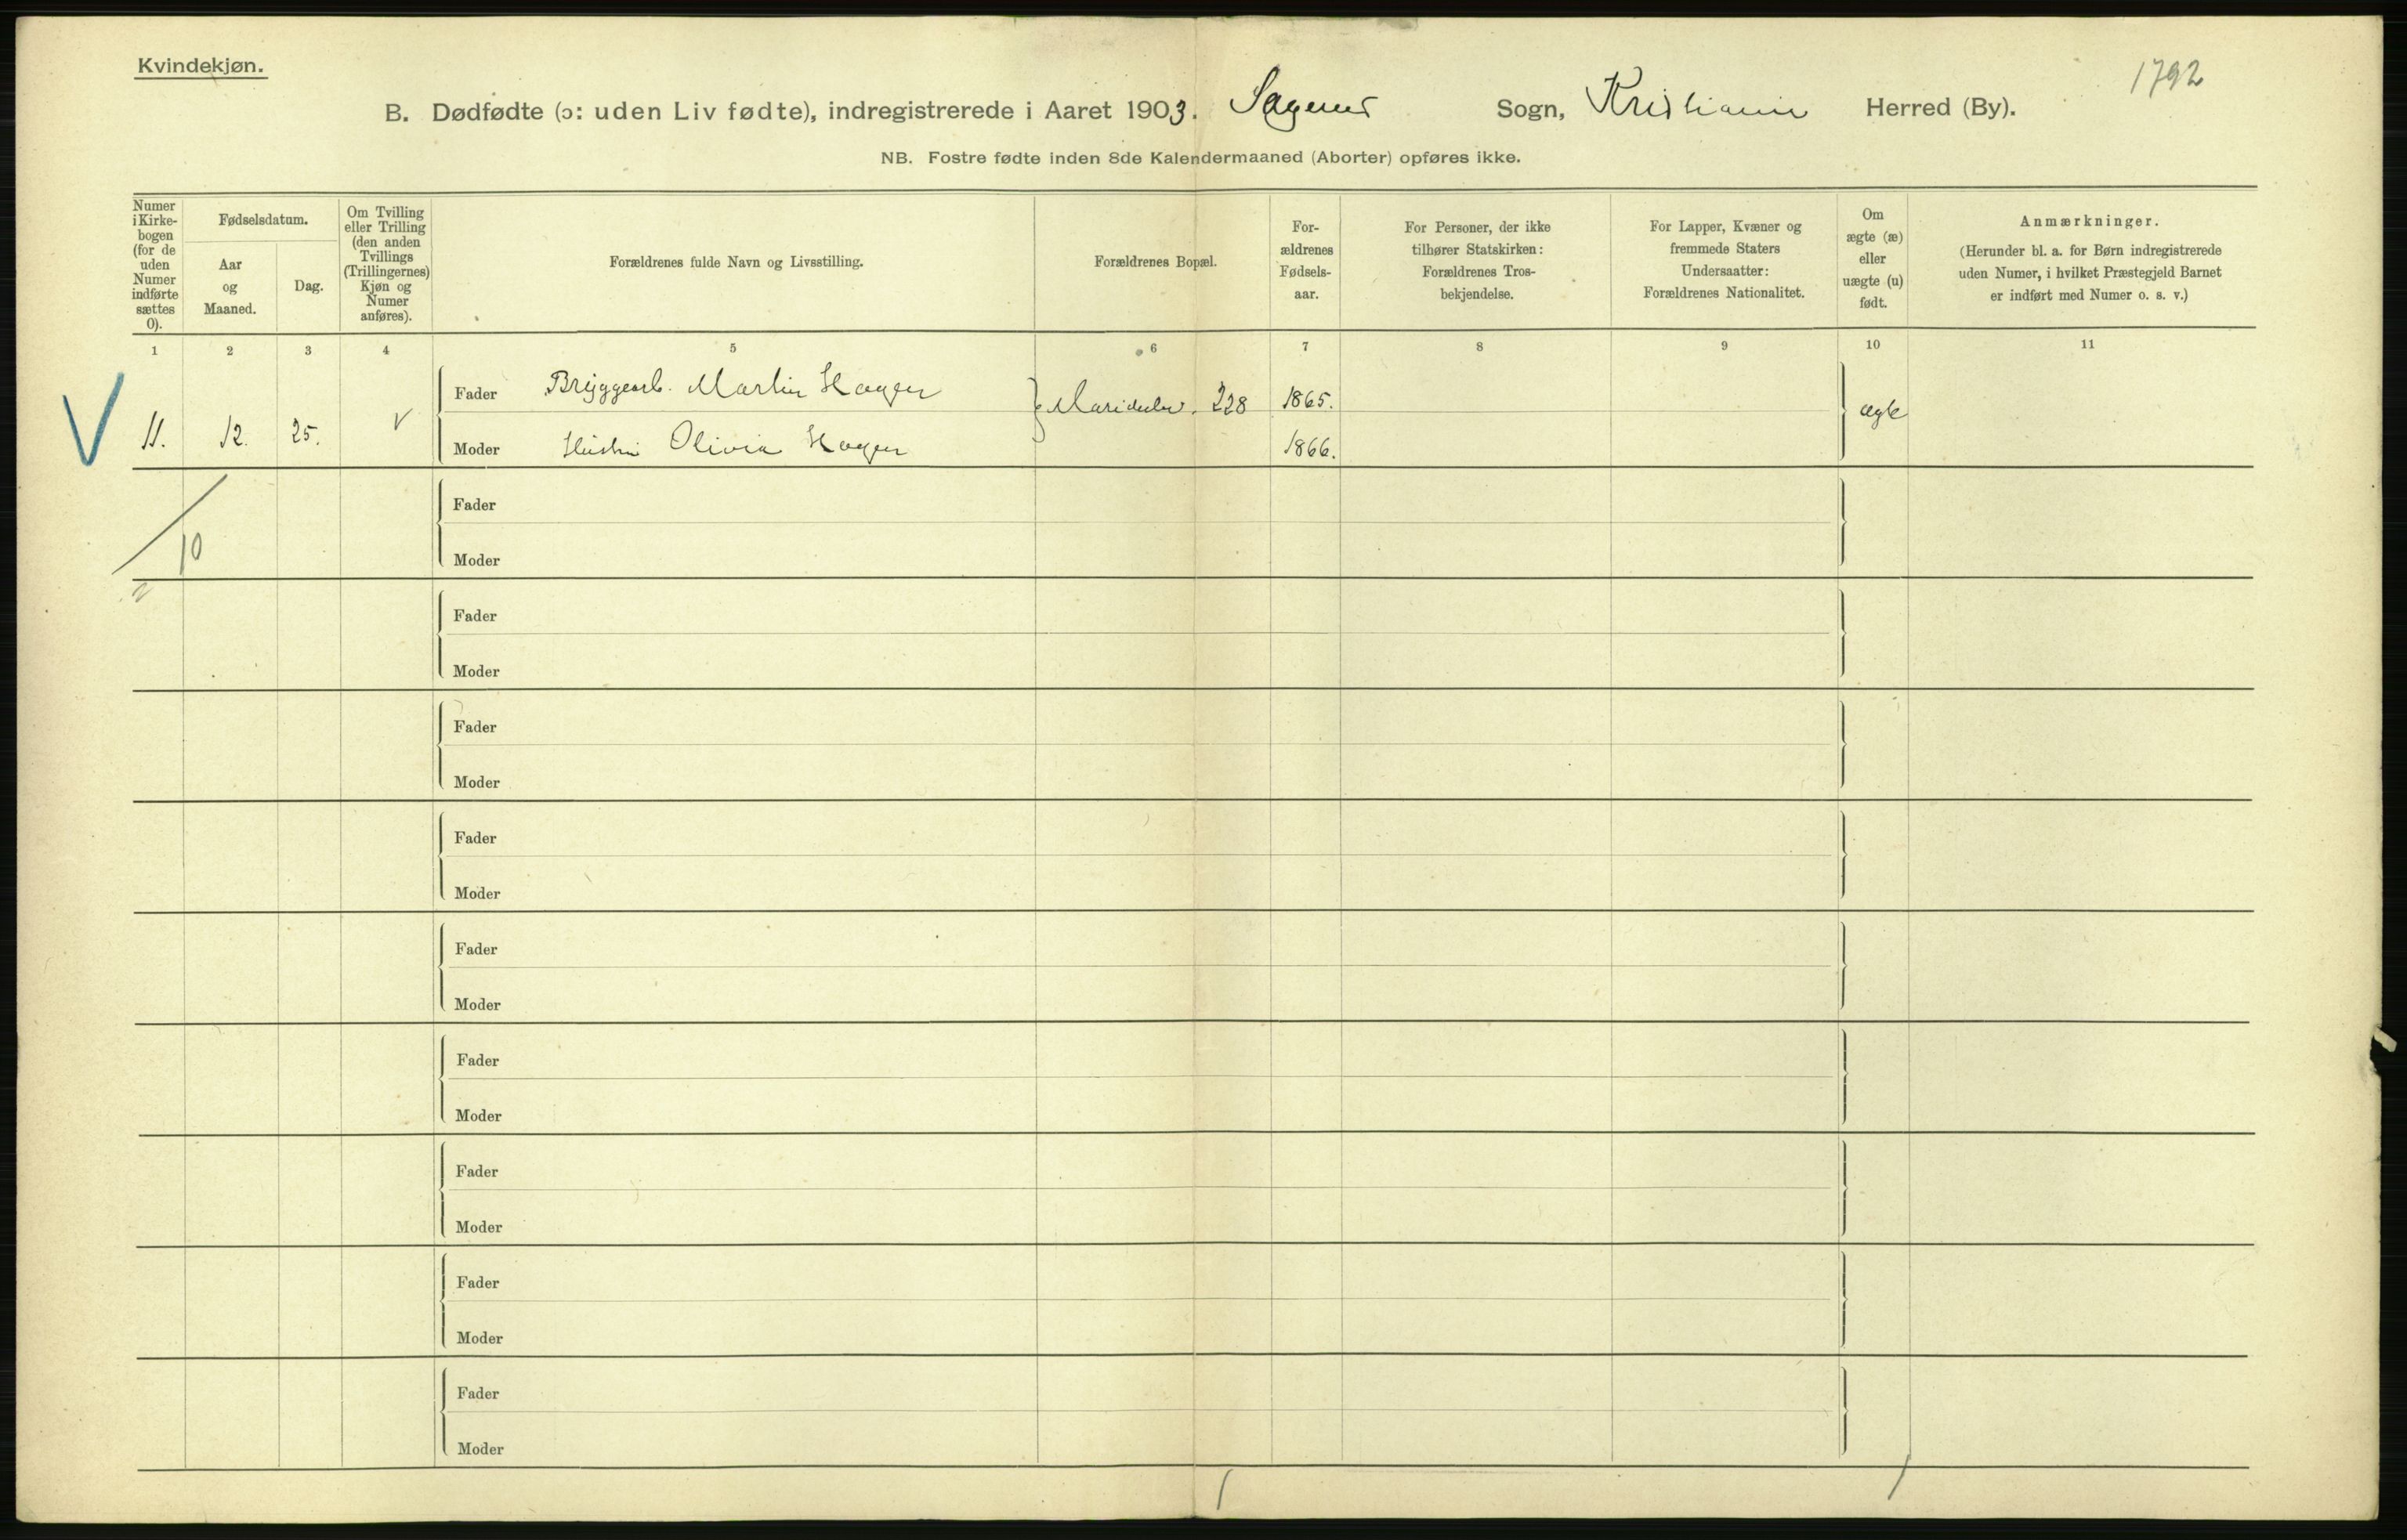 Kvindekjøn.
1792
B. Dødfødte (ɔ: uden Liv fødte), indregistrerede i Aaret 1903. Sagenes Sogn, Kristiania Herred (By).
NB. Fostre fødte inden 8de Kalendermaaned (Aborter) opføres ikke.
Numer
i Kirke-
bogen
(for de
uden
Numer
indførte
sættes
0).
Fødselsdatum.
Aar
og
Maaned.
Dag.
Om Tvilling
eller Trilling
(den anden
Tvillings
(Trillingernes)
Kjøn og
Numer
anføres).
Forældrenes fulde Navn og Livsstilling.
Forældrenes Bopæl.
For-
ældrenes
Fødsels-
aar.
For Personer, der ikke
tilhører Statskirken:
Forældrenes Tros-
bekjendelse.
For Lapper, Kvæner og
fremmede Staters
Undersaatter:
Forældrenes Nationalitet.
Om
ægte (æ)
eller
uægte (u)
født.
Anmærkninger.
(Herunder bl. a. for Børn indregistrerede
uden Numer, i hvilket Præstegjeld Barnet
er indført med Numer o. s. v.)
1 2 3 4 5 6 7 8 9 10 11
Fader Bryggearb. Martin Hagen Maridalsv. 228 1865.
V 11. 12. 25. V ægte
Moder Hustru Olivia Hagen 1866.
Fader
10
Moder
Fader
Moder
Fader
Moder
Fader
Moder
Fader
Moder
Fader
Moder
Fader
Moder
Fader
Moder
Fader
Moder